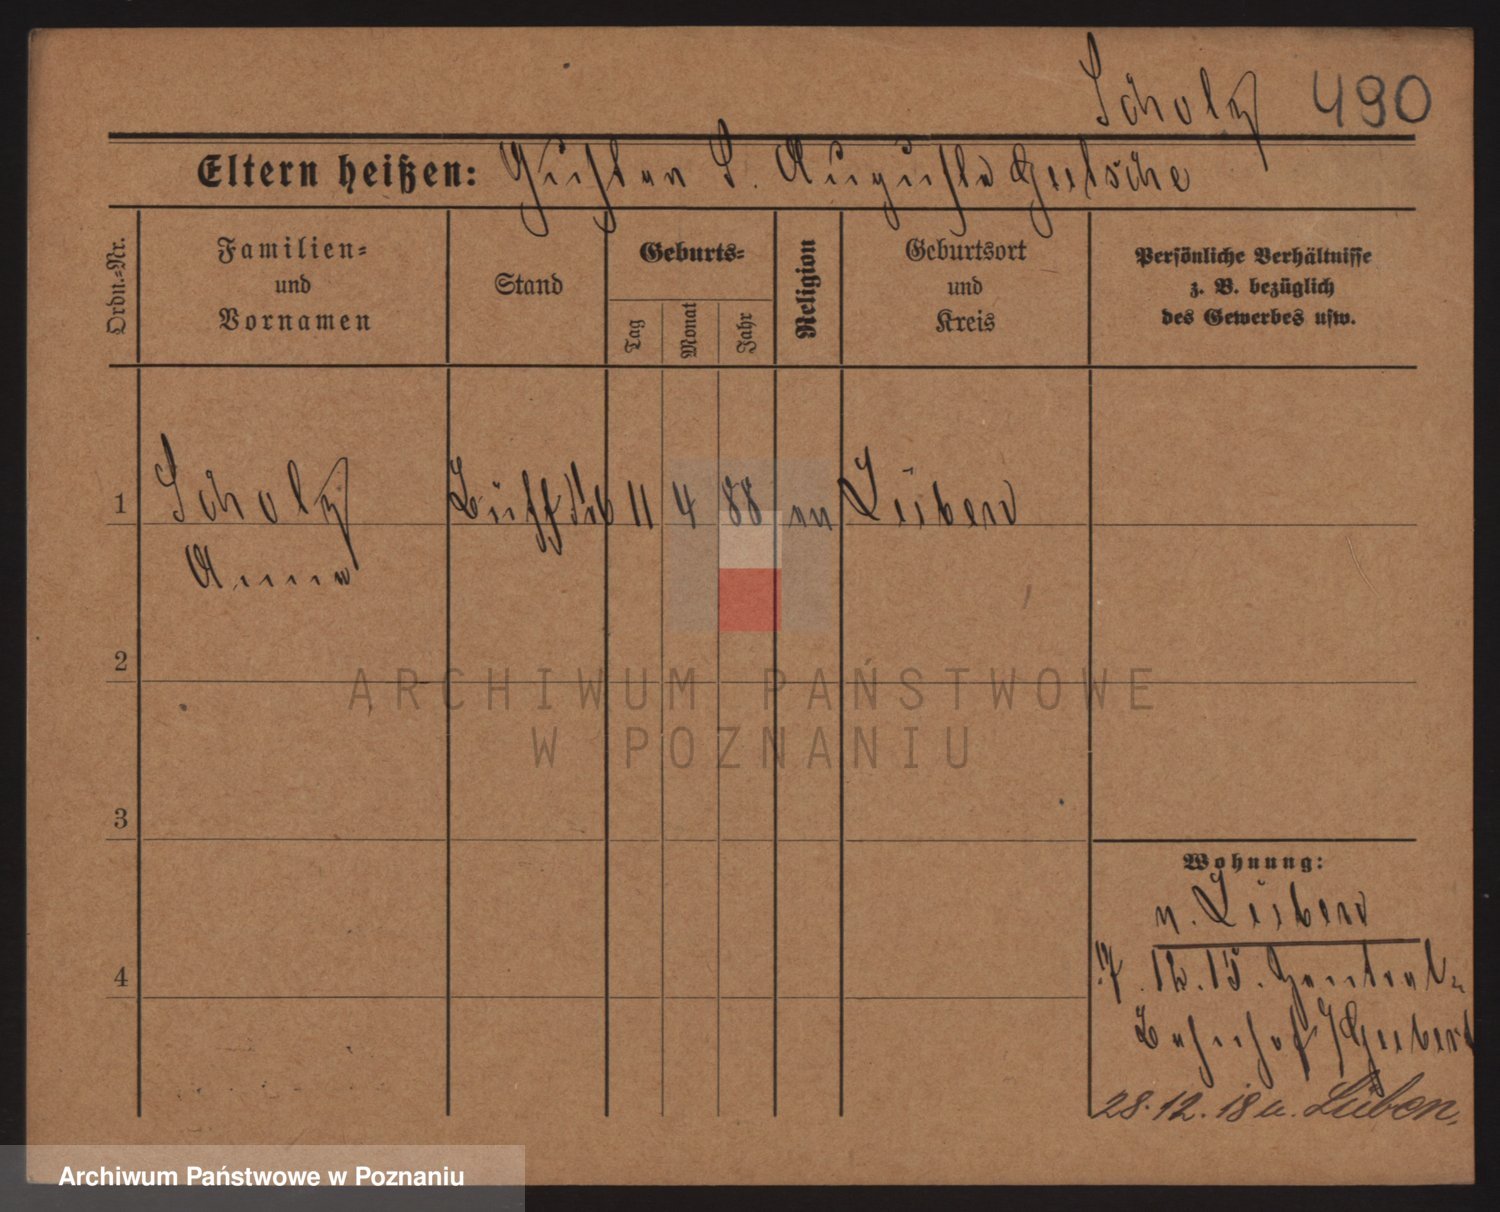 Scholz 490
Eltern heißen: Gustav S. Auguste Gütsche
Ordn.-Nr.
Familien-
und
Vornamen
Stand
Geburts-
Tag
Monat
Jahr
Religion
Geburtsort
und
Kreis
Persönliche Verhältnisse
z. B. bezüglich
des Gewerbes usw.
1
Scholz
Anna
Büfffrl 11 4 88 ev Lüben
2
ARCHIWUM PAŃSTWOWE
W POZNANIU
3
Wohnung:
n. Lüben
4
7.12.15. Zentral-
Bahnhof
28.12.18 n. Lüben.
Archiwum Państwowe w Poznaniu